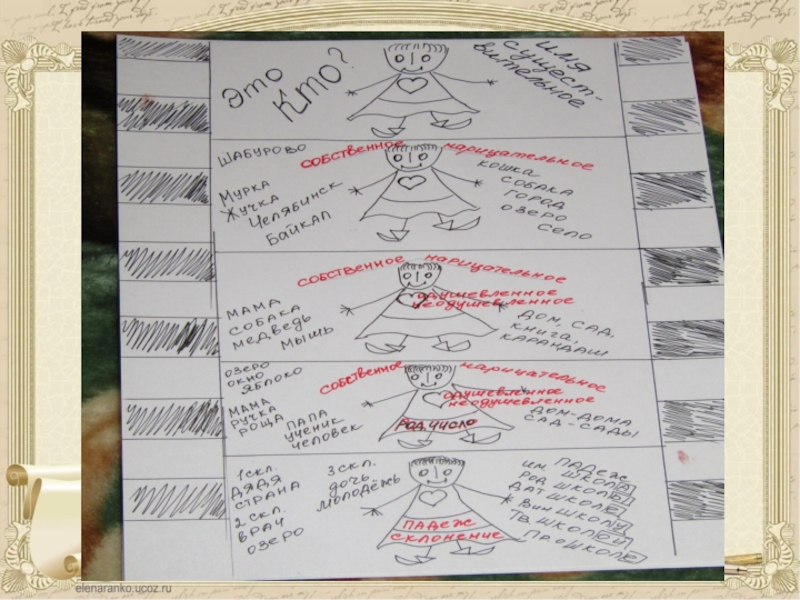 Это
Кто?
имя
сущест-
вительное
Шабурово
Мурка
Жучка
Челябинск
Байкал
собственное
нарицательное
кошка
собака
город
озеро
село
собственное
нарицательное
одушевленное
неодушевленное
мама
собака
медведь
мышь
дом, сад,
книга,
карандаш
озеро
окно
яблоко
мама
ручка
роща
папа
ученик
человек
собственное
нарицательное
одушевленное
неодушевленное
род, число
дом-дома
сад-сады
1 скл.
дядя
страна
2 скл.
врач
озеро
3 скл.
дочь
молодёжь
падеж
склонение
падеж
им. школа
род школы
дат школе
вин школу
тв. школой
пр. о школе
elenaranko.ucoz.ru